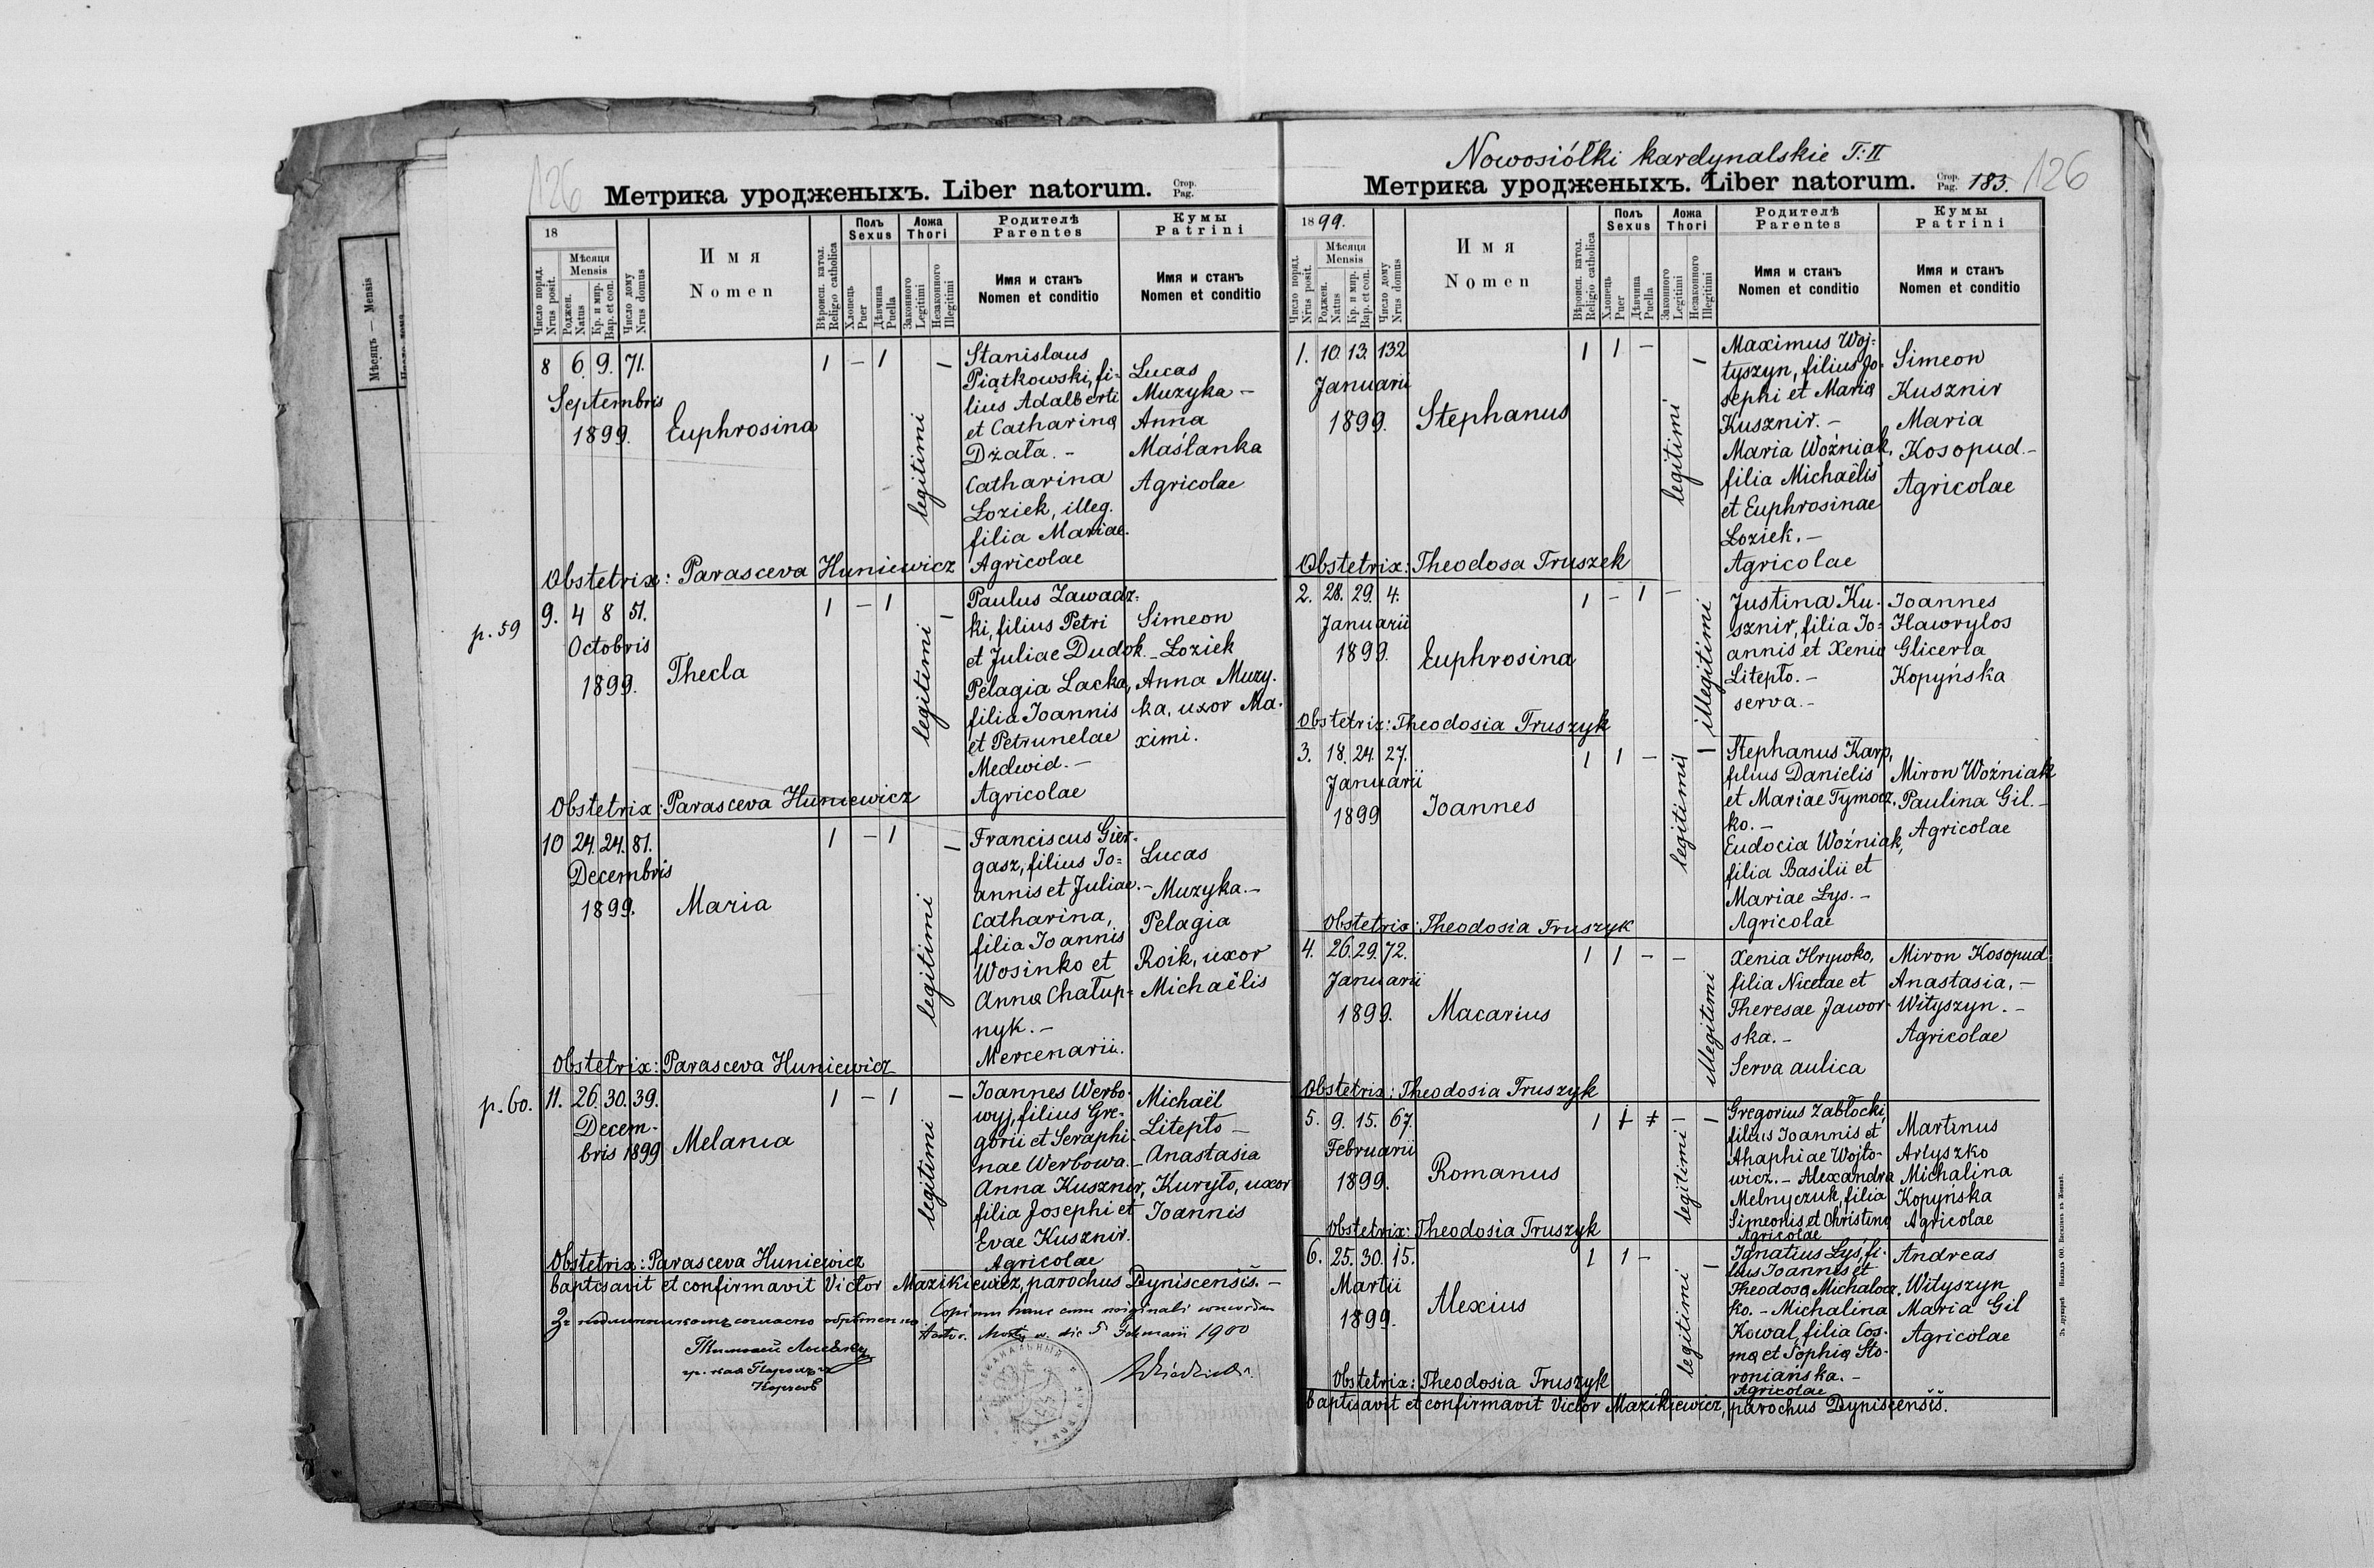 126
Метрика уродженыхъ. Liber natorum. Стор. Pag.
18
Мѣсяць — Mensis
Число поряд. Nrus posit.
Мѣсяця Mensis
Роджен. Natus
Кр. и мир. Bap. et con.
Число дому Nrus domus
Имя
Nomen
Вѣроисп. катол. Religio catholica
Полъ Sexus
Хлопець Puer
Дѣвчина Puella
Ложа Thori
Законного Legitimi
Незаконного Illegitimi
Родителѣ
Parentes
Имя и станъ
Nomen et conditio
Кумы
Patrini
Имя и станъ
Nomen et conditio
8 6. 9. 71.
Septembris
1899. Euphrosina
1 – 1
legitimi
Stanislaus
Piątkowski, fi=
lius Adalberti
et Catharina
Dżała. –
Catharina
Łoziek, illeg.
filia Mariae.
Agricolae
Lucas
Muzyka –
Anna
Maślanka
Agricolae
Obstetrix: Parasceva Huniewicz
p. 59
9. 4 8 51.
Octobris
1899. Thecla
1 – 1
legitimi
Paulus Zawadz=
ki, filius Petri
et Juliae Dudok. –
Pelagia Lacka,
filia Joannis
et Petrunelae
Medwid. –
Agricolae
Simeon
Łoziek
Anna Muzy.
ka, uxor Ma.
ximi.
Obstetrix: Parasceva Huniewicz
10 24. 24. 81.
Decembris
1899. Maria
1 – 1
legitimi
Franciscus Gier=
gasz, filius Jo=
annis et Juliae. –
Catharina,
filia Joannis
Wosinko et
Anna Chałup=
nyk. –
Mercenarii.
Lucas
Muzyka. –
Pelagia
Roik, uxor
Michaëlis
Obstetrix: Parasceva Huniewicz
p. 60.
11. 26. 30. 39.
Decem-
bris 1899 Melania
1 – 1 –
legitimi
Joannes Werbo.
wyj, filius Gre-
gorii et Seraphi.
nae Werbowa. –
Anna Kusznir,
filia Josephi et
Evae Kusznir.
Agricolae
Michaël
Litepło –
Anastasia
Kuryło, uxor
Joannis
Obstetrix: Parasceva Huniewicz
baptisavit et confirmavit Victor Mazikiewicz, parochus Dyniscensis. –
Copiam hanc cum originali
5 1900
Nowosiółki kardynalskie T: II
Метрика уродженыхъ. Liber natorum. Стор. Pag. 183. 126
1899.
Число поряд. Nrus posit.
Мѣсяця Mensis
Роджен. Natus
Кр. и мир. Bap. et con.
Число дому Nrus domus
Имя
Nomen
Вѣроисп. катол. Religio catholica
Полъ Sexus
Хлопець Puer
Дѣвчина Puella
Ложа Thori
Законного Legitimi
Незаконного Illegitimi
Родителѣ
Parentes
Имя и станъ
Nomen et conditio
Кумы
Patrini
Имя и станъ
Nomen et conditio
1. 10. 13. 132
Januarii
1899. Stephanus
1 1 –
legitimi
Maximus Woj=
tyszyn, filius Jo.
sephi et Maria
Kusznir. –
Maria Woźniak,
filia Michaëlis
et Euphrosinae
Łoziek. –
Agricolae
Simeon
Kusznir
Maria
Kosopud. –
Agricolae
Obstetrix: Theodosa Truszek
2. 28. 29. 4.
Januarii
1899. Euphrosina
1 – 1 –
illegitimi
Justina Ku.
sznir, filia Jo=
annis et Xenia
Litepło. –
serva. –
Joannes
Hawrylos
Gliceria
Kopyńska
Obstetrix: Theodosia Truszyk
3. 18. 24. 27.
Januarii
1899 Joannes
1 1 –
legitimi
Stephanus Karp,
filius Danielis
et Mariae Tymocz.
ko. –
Eudocia Woźniak,
filia Basilii et
Mariae Łys. –
Agricolae
Miron Woźniak
Paulina Gil. –
Agricolae
Obstetrix: Theodosia Truszyk
4. 26. 29. 72.
Januarii
1899. Macarius
1 1 – –
illegitimi
Xenia Hrywko,
filia Nicetae et
Theresae Jawor-
ska. –
Serva aulica
Miron Kosopud
Anastasia, –
Wityszyn. –
Agricolae
Obstetrix: Theodosia Truszyk
5. 9. 15. 67.
Februarii
1899. Romanus
legitimi
Gregorius Zabłocki,
filius Joannis et
Ahaphiae Wojto-
wicz. – Alexandra
Melnyczuk, filia
Simeonis et Christina
Agricolae
Martinus
Artyszko
Michalina
Kopyńska
Agricolae
Obstetrix: Theodosia Truszyk
6. 25. 30. 15.
Martii
1899. Alexius
1 1 –
legitimi
Ignatius Łyś, fi.
lius Joannis et
Theodosa Michałocz.
ko. – Michalina
Kowal, filia Cos.
ma et Sophia Sto.
roniańska. –
Agricolae
Andreas
Wityszyn
Maria Gil
Agricolae
Obstetrix: Theodosia Truszyk
baptisavit et confirmavit Victor Mazikiewicz, parochus Dyniscensis.